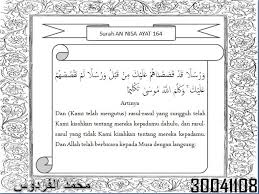 Surah AN NISA AYAT 164
وَرُسُلًا قَدْ قَصَصْنَاهُمْ عَلَيْكَ مِنْ قَبْلُ وَرُسُلًا لَمْ نَقْصُصْهُمْ
عَلَيْكَ ۚ وَكَلَّمَ اللَّهُ مُوسَىٰ تَكْلِيمًا
Artinya
Dan (Kami telah mengutus) rasul-rasul yang sungguh telah
Kami kisahkan tentang mereka kepadamu dahulu, dan rasul-
rasul yang tidak Kami kisahkan tentang mereka kepadamu.
Dan Allah telah berbicara kepada Musa dengan langsung.
محمد الفردوس
30041108